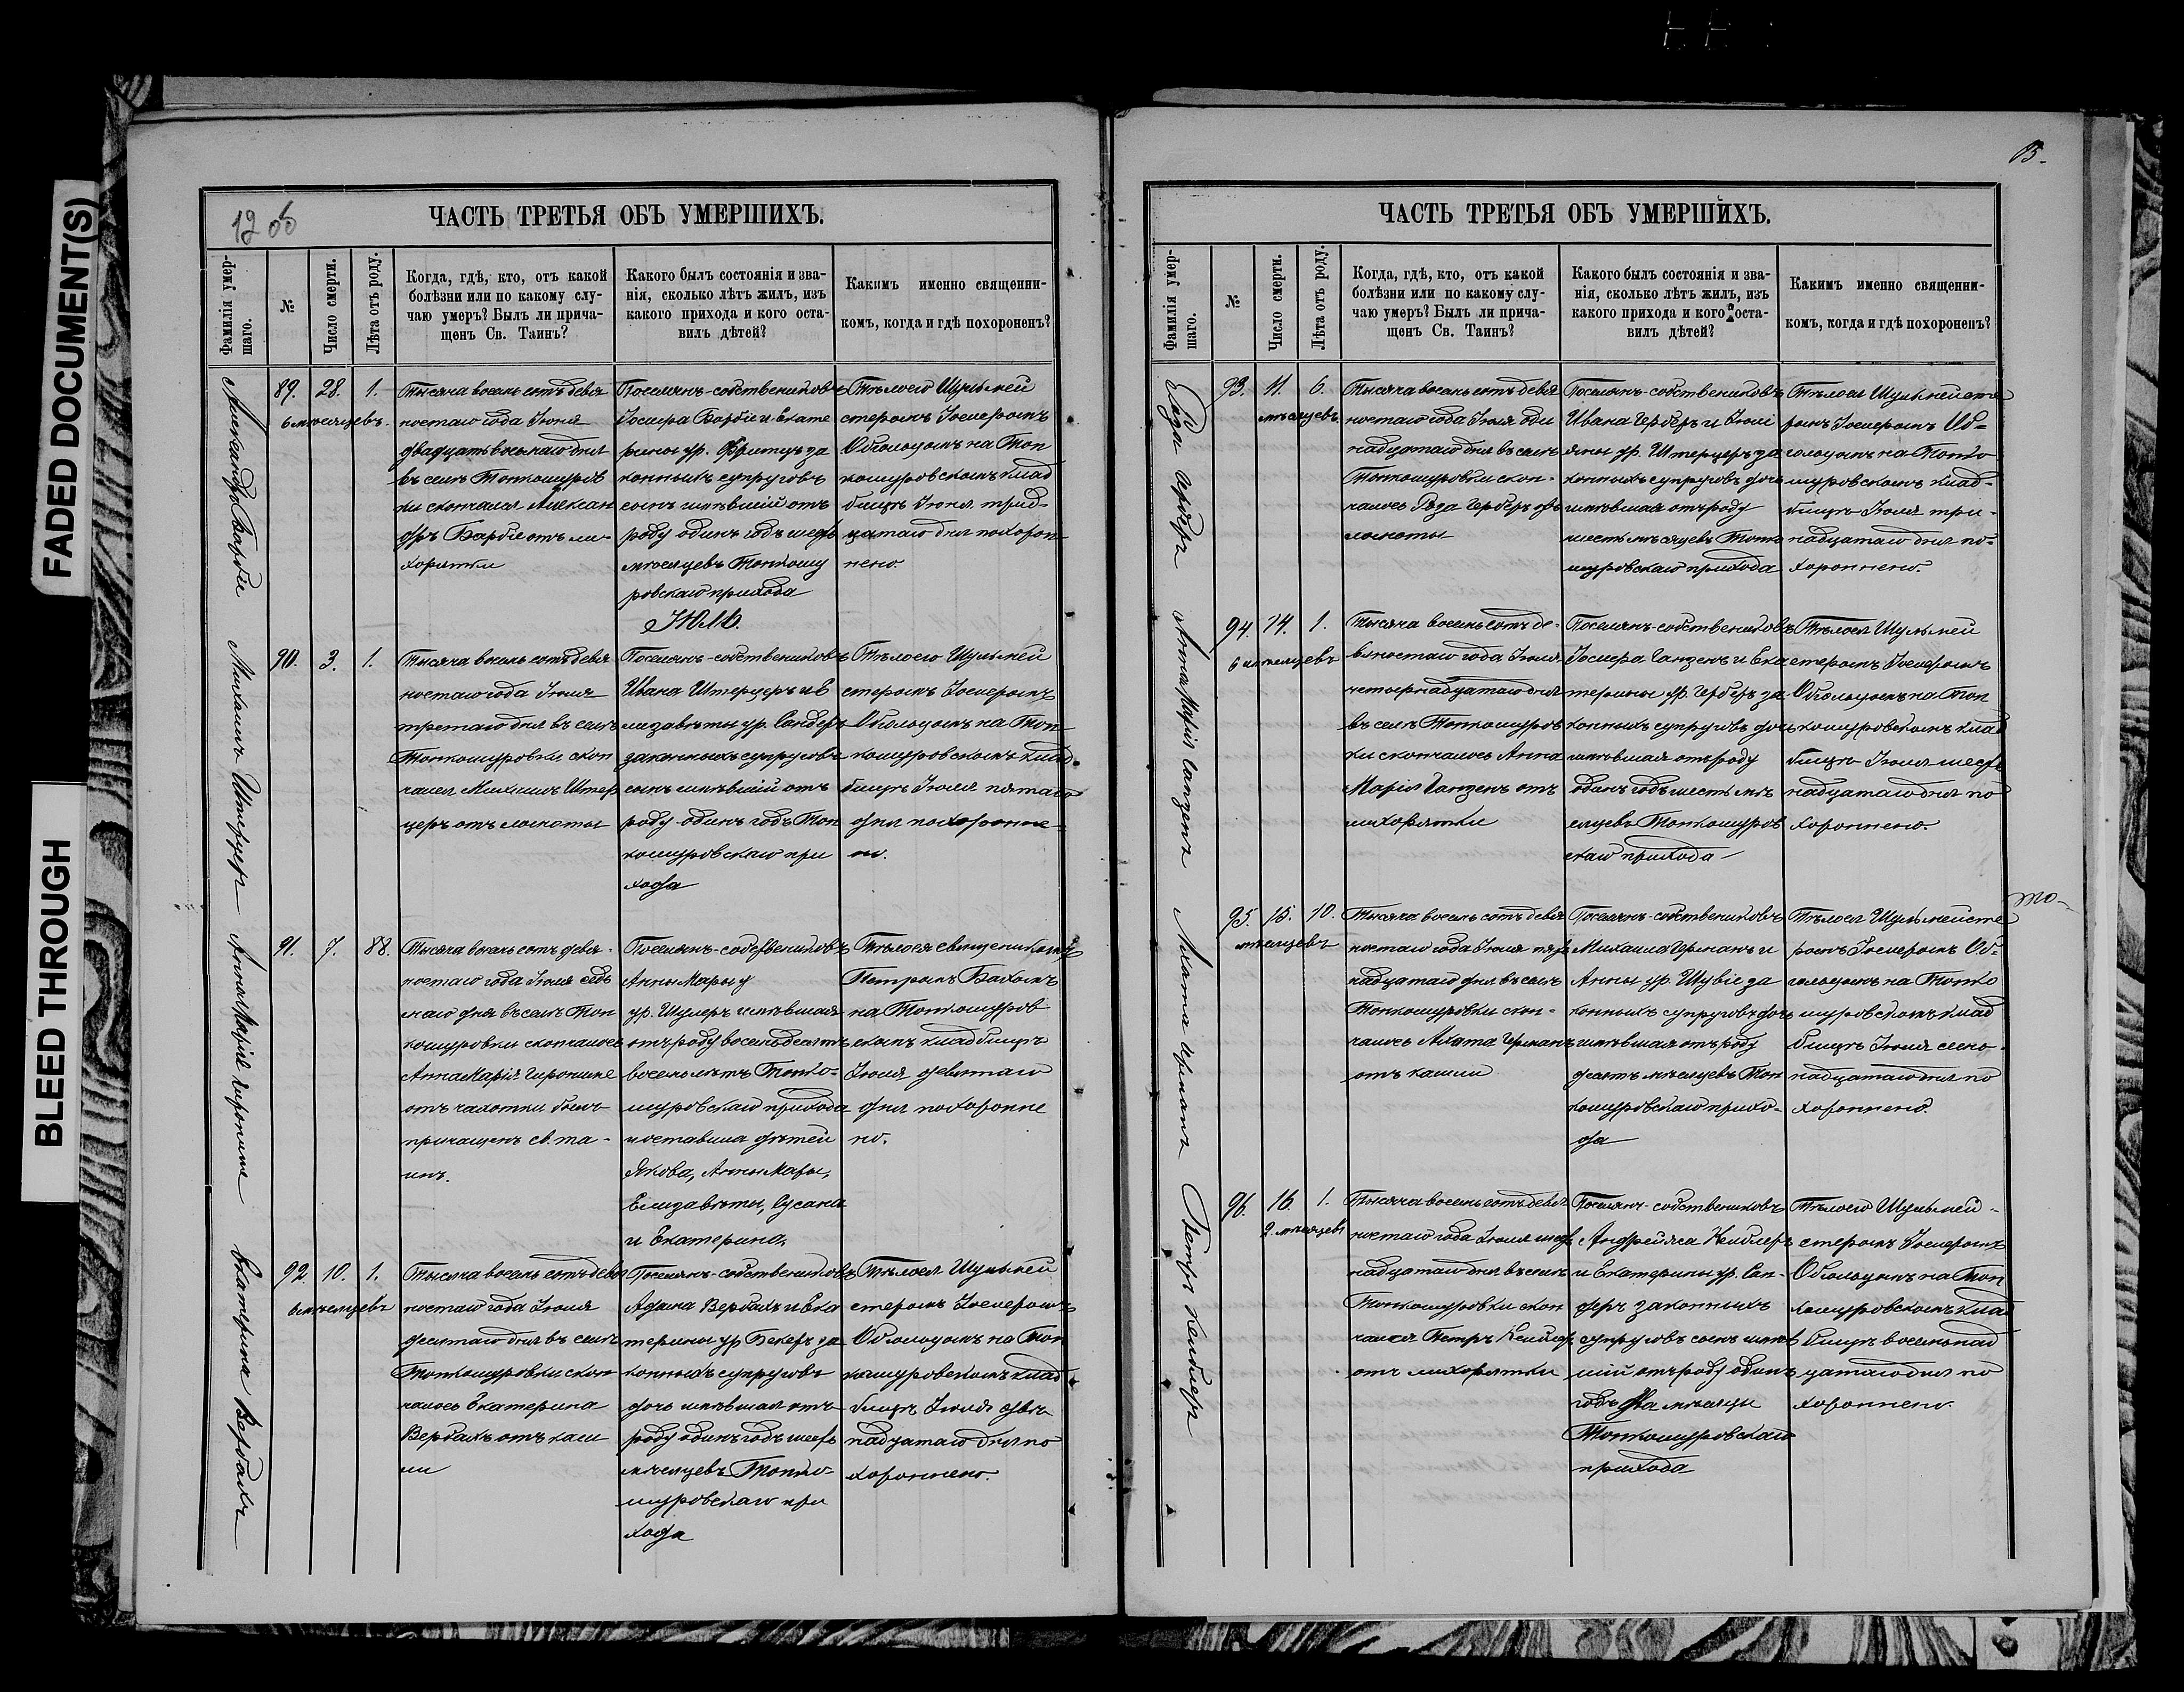 FADED DOCUMENT(S)
BLEED THROUGH
ЧАСТЬ ТРЕТЬЯ ОБЪ УМЕРШИХЪ.
Фамилія умер-
шаго.
№
Число смерти.
Лѣта отъ роду.
Когда, гдѣ, кто, отъ какой
болѣзни или по какому слу-
чаю умеръ? Былъ ли прича-
щенъ Св. Таинъ?
Какого былъ состоянія и зва-
нія, сколько лѣтъ жилъ, изъ
какого прихода и кого оста-
вилъ дѣтей?
Какимъ именно священни-
комъ, когда и гдѣ похороненъ?
Александръ Барбіе
89. 28. 1.
6 мѣсяцевъ.
Тысяча восемь сотъ девя
ностаго года Іюня
двадцать восьмаго дня
въ селѣ Топкошуров
ки скончался Алексан
дръ Барбіе отъ ли-
хорятки
Поселянъ-собственниковъ
Іосифа Барбіе и Екате
рины ур. Фритцъ за
конныхъ супруговъ
сынъ имѣвшій отъ
роду одинъ годъ шесть
мѣсяцевъ Топкошу
ровскаго прихода
Тѣлосго Шульмей
стеромъ Іосифомъ
Обгольцомъ на Топ
кошуровскомъ клад
бищѣ Іюня трид-
цатаго дня похорон
нено
Июль.
Михаилъ Штерцеръ
90. 3. 1.
Тысяча восемь сотъ девя
ностаго года Іюля
третаго дня въ селѣ
Топкошуровки скон
чался Михаилъ Штер
церъ отъ ломоты
Поселянъ-собственниковъ
Ивана Штерцеръ и Е
лизаветы ур. Сандеръ
законныхъ супруговъ
сынъ имѣвшій отъ
роду одинъ годъ Топ
кошуровскаго при
хода
Тѣлосго Шульмей
стеромъ Іосифомъ
Обгольцомъ на Топ
кошуровскомъ клад
бищѣ Іюля пятаго
дня похоронне
но.
Анна Марія Гирониме
91. 7. 88.
Тысяча восемь сотъ девя-
ностаго года Іюля седь
маго дня въ селѣ Топ
кошуровки скончалось
Анна Марія Гирониме
отъ чахотки былъ
причащенъ св. та-
инъ.
Поселянъ-собственниковъ
Анны Мары у
ур. Шулеръ имѣвшая
отъ роду восемьдесятъ
восемь лѣтъ Топко-
шуровскаго прихода
и оставила дѣтей
Якова, Анны Мары,
Елизаветы, Сусана
и Екатерина,
Тѣлося священикомъ
Петромъ Бахомъ
на Топкошуров
скомъ кладбищѣ
Іюля девятаго
дня похоронне
но.
Екатерина Вербахъ
92. 10. 1.
6 мѣсяцевъ
Тысяча восемь сотъ девя
ностаго года Іюля
десятаго дня въ селѣ
Топкошуровки скон
чалось Екатерина
Вербахъ отъ каш
ли
Поселянъ-собственниковъ
Адама Вербахъ и Ека
терины ур Бекеръ за
конныхъ супруговъ
дочь имѣвшая отъ
роду одинъ годъ шесть
мѣсяцевъ Топко-
шуровскаго при
хода
Тѣлося Шульмей
стеромъ Іосифомъ
Обгольцомъ на Топ
кошуровскомъ клад
бищѣ Іюля две
надцатаго дня по
хороннено.
ЧАСТЬ ТРЕТЬЯ ОБЪ УМЕРШИХЪ.
Фамилія умер-
шаго.
№
Число смерти.
Лѣта отъ роду.
Когда, гдѣ, кто, отъ какой
болѣзни или по какому слу-
чаю умеръ? Былъ ли прича-
щенъ Св. Таинъ?
Какого былъ состоянія и зва-
нія, сколько лѣтъ жилъ, изъ
какого прихода и кого оста-
вилъ дѣтей?
Какимъ именно священни-
комъ, когда и гдѣ похороненъ?
Роза Герберъ
93. 11. 6.
мѣсяцевъ
Тысяча восемь сотъ девя
ностаго года Іюля оди
надцатаго дня въ селѣ
Топкошуровки скон-
чалось Роза Герберъ отъ
ломоты
Поселянъ-собственниковъ
Ивана Герберъ и Юлі
яны ур. Штерцеръ за
конныхъ супруговъ дочь
имѣвшая отъ роду
шесть мѣсяцевъ Топко
шуровскаго прихода
Тѣлося Шульмейсте
ромъ Іосифомъ Об-
гольцомъ на Топко
шуровскомъ клад-
бищѣ Іюля три-
надцатаго дня по-
хороннено.
Анна Марія Ганзенъ
94. 14. 1.
6 мѣсяцевъ
Тысяча восемь сотъ де-
вяностаго года Іюля
четырнадцатаго дня
въ селѣ Топкошуров
ки скончалось Анна
Марія Ганзенъ отъ
лихорятки
Поселянъ-собственниковъ
Іосифа Ганзенъ и Ека
терины ур. Герберъ за
конныхъ супруговъ дочь
имѣвшая отъ роду
одинъ годъ шесть мѣ
сяцевъ Топкошуров
скаго прихода
Тѣлося Шульмей
стеромъ Іосифомъ
Обгольцомъ на Топ
кошуровскомъ клад
бищѣ Іюля шест
надцатаго дня по
хороннено.
Агата Германъ
95. 15. 10.
мѣсяцевъ
Тысяча восемь сотъ девя
ностаго года Іюля пят
надцатаго дня въ селѣ
Топкошуровки скон-
чалось Агата Германъ
отъ кашли
Поселянъ-собственниковъ
Михаила Германъ и
Анны ур. Шубіе за
конныхъ супруговъ дочь
имѣвшая отъ роду
десять мѣсяцевъ Топ
кошуровскаго прихо-
да
Тѣлося Шульмейсте
ромъ Іосифомъ Об-
гольцомъ на Топко
шуровскомъ клад
бищѣ Іюля семо-
надцатаго дня по
хороннено.
Петръ Кейблеръ
96. 16. 1.
2 мѣсяцевъ
Тысяча восемь сотъ девя
ностаго года Іюля шест
надцатаго дня въ селѣ
Топкошуровки скон
чался Петръ Кейблеръ
отъ лихорятки
Поселянъ-собственниковъ
Андрейяса Кейблеръ
и Екатерины ур. Сан-
деръ законныхъ
супруговъ сынъ имѣв
шій отъ роду одинъ
годъ два мѣсяцы
Топкошуровскаго
прихода
Тѣлосго Шульмей-
стеромъ Іосифомъ
Обгольцомъ на Топ
кошуровскомъ клад
бищѣ восемнад
цатаго дня по
хороннено